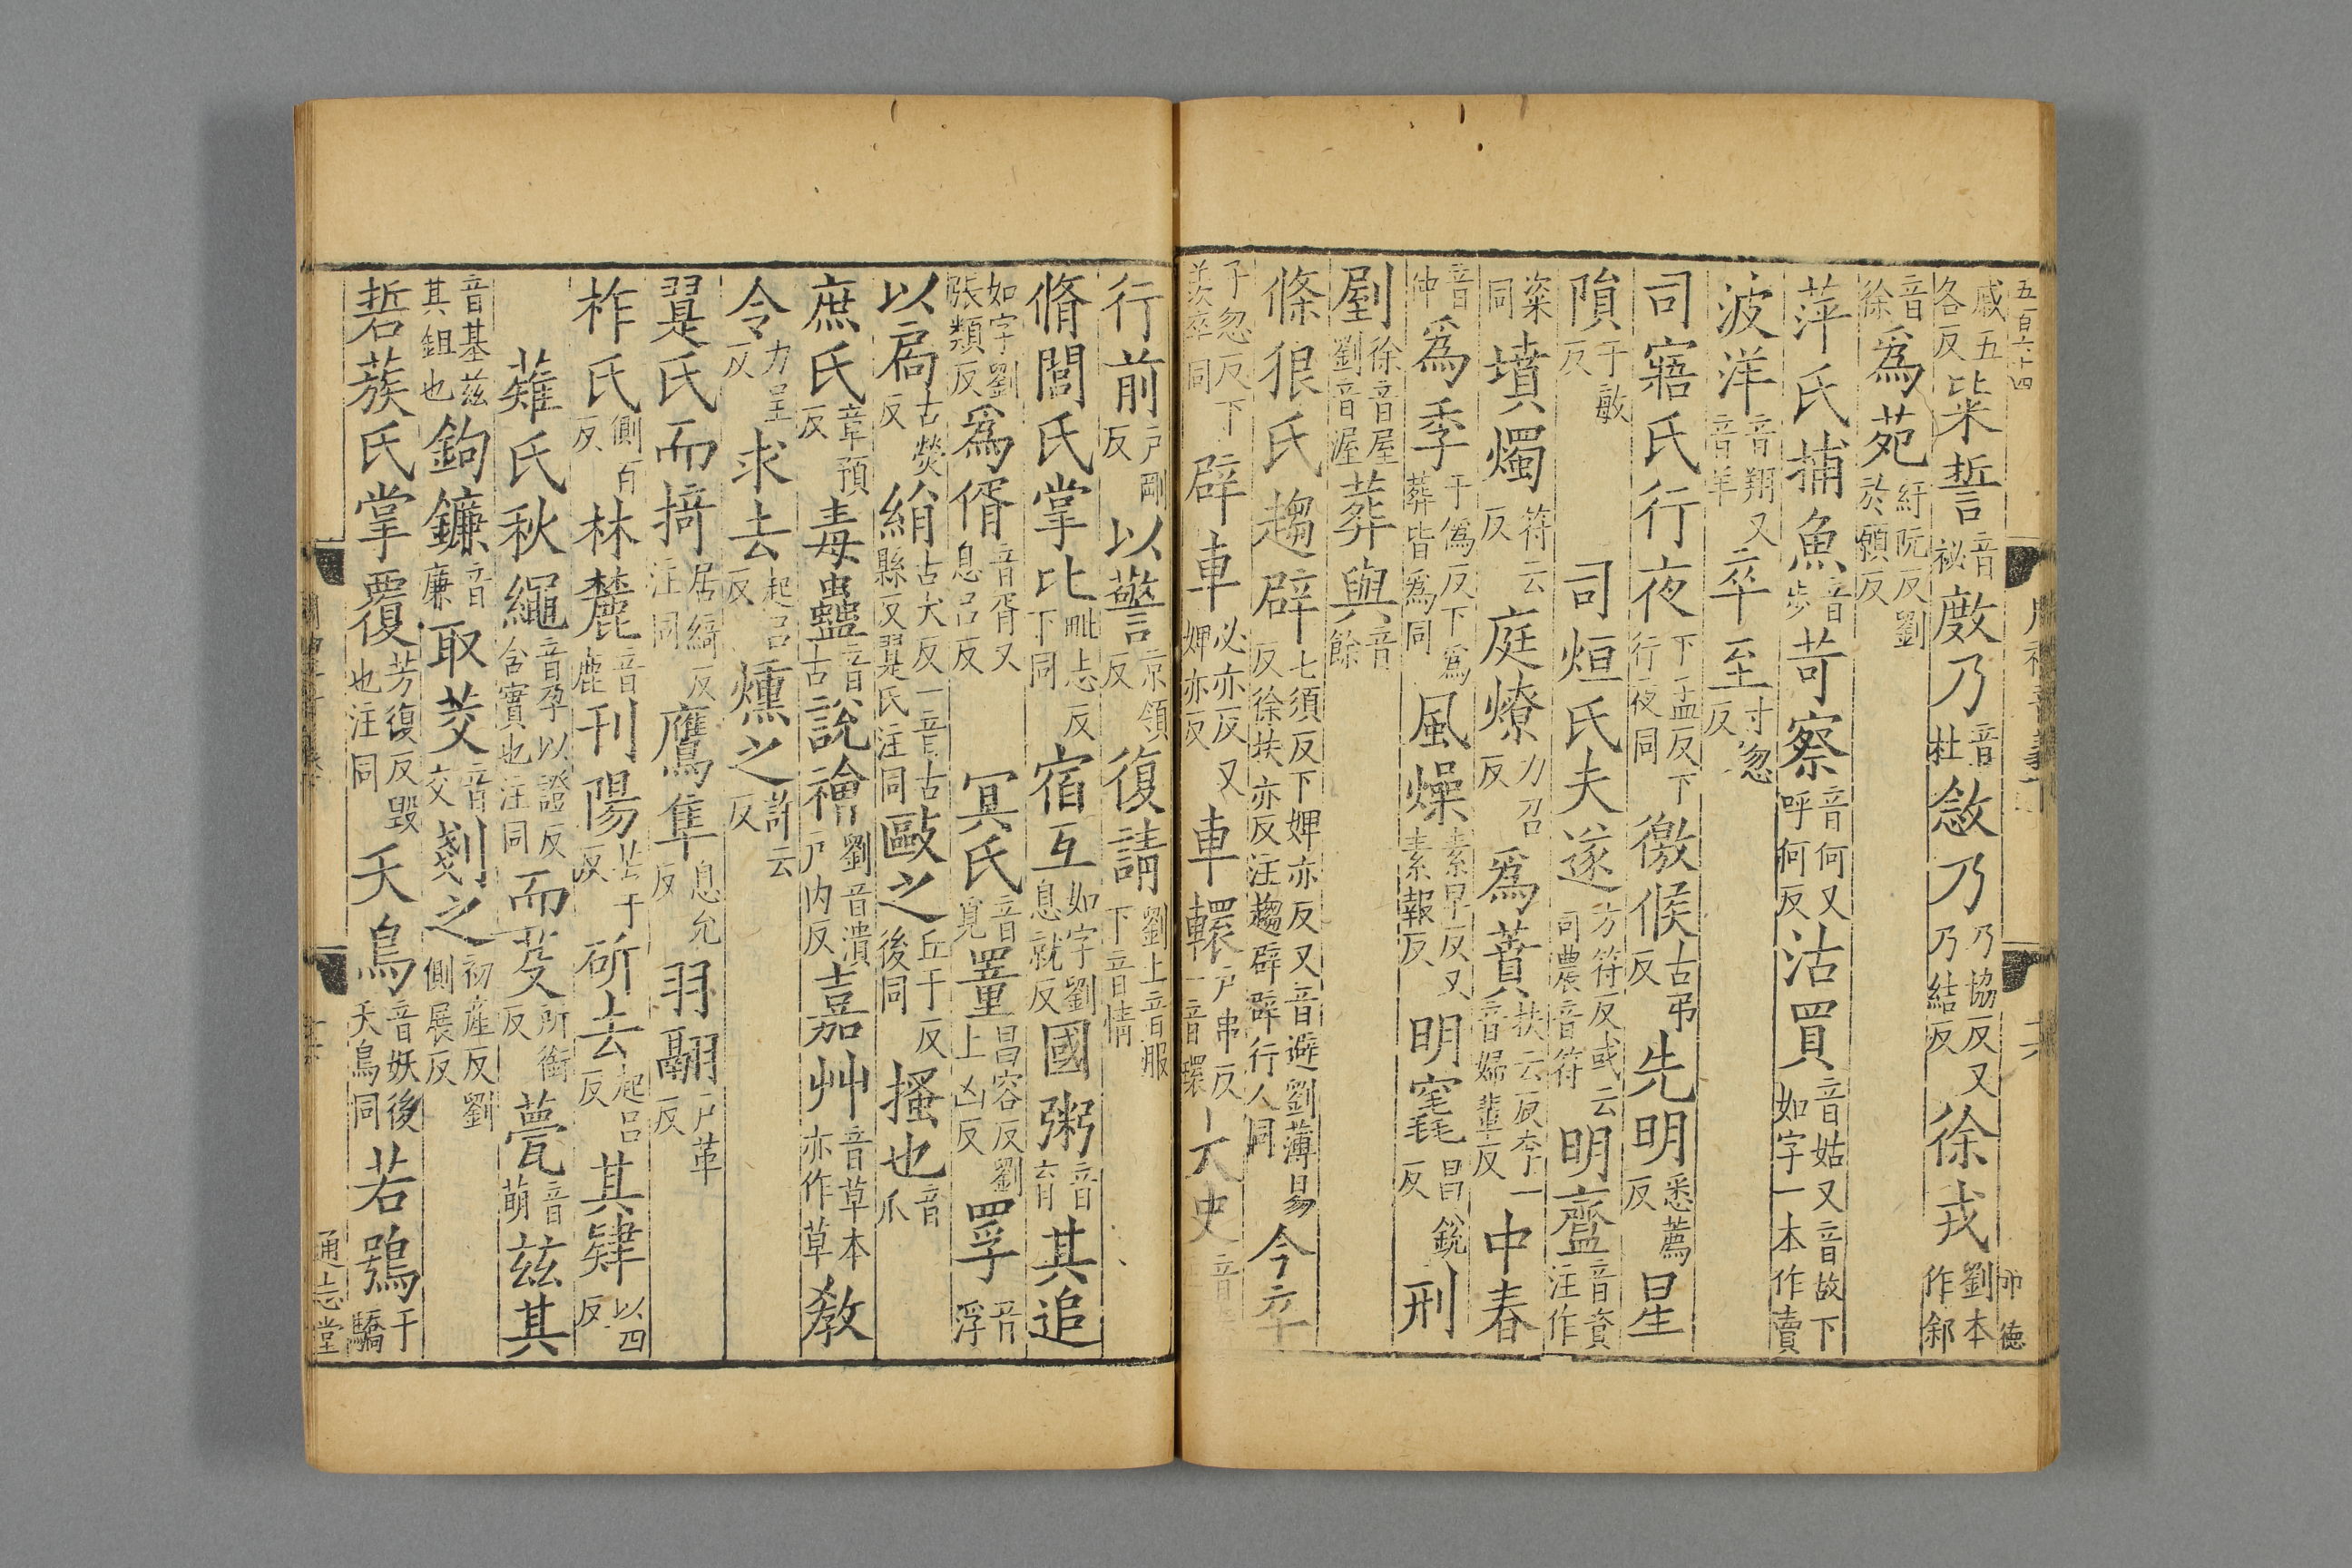 五百六十四
戚五各反柴誓音祕敜乃音杜敜乃乃協反又乃結反徐戎劉本作郐
音徐爲苑紆阮反劉於願反
萍氏捕魚音步苛察音何又呼何反沽買音姑又音故下如字一本作賣
波洋音翔又音羊卒至寸忽反
司寤氏行夜下孟反下行夜同徼候古弔反先明悉薦反星
隕于敏反 司烜氏夫遂方符反或云司農音符明齍音資注作
粢同墳燭符云反庭燎力召反爲蕡扶云反李一音婦輩反中春
音仲爲季于僞反下爲葬皆爲同風燥素早反又素報反明竁昌銳反刑
剭徐音屋劉音渥葬與音餘
條狼氏趨辟七須反下婢亦反又音避劉薄易反徐扶亦反注趨辟辟行人同今卒
子忽反下羨卒同辟車必亦反又婢亦反車轘戶串反一音環大史音
行前戶剛反以警京領反復請劉上音服下音情
脩閭氏掌比毗志反下同宿互如字劉息就反國粥音育其追
如字劉張類反爲偦音胥又息呂反 冥氏音覓罿昌容反劉上凶反罦音浮
以扃古熒反絹古犬反一音古縣反翨氏注同敺之丘于反後同搔也音爪
庶氏章預反毒蠱音古說禬劉音潰戶内反嘉艸音草本亦作草教
令力呈反求去起呂反燻之許云反
翨氏而掎居綺反注同鷹隼息允反羽翮戶革反
柞氏側百反林麓音鹿刊陽苦干反斫去起呂反其肄以四反
薙氏秋繩音孕以證反含實也注同而芟所銜反薨音萌兹其
音基兹其鉏也鉤鐮音廉取茭音交剗之初産反劉側展反
硩蔟氏掌覆芳復反毀也注同夭鳥音妖後夭鳥同若鴞于驕
通志堂